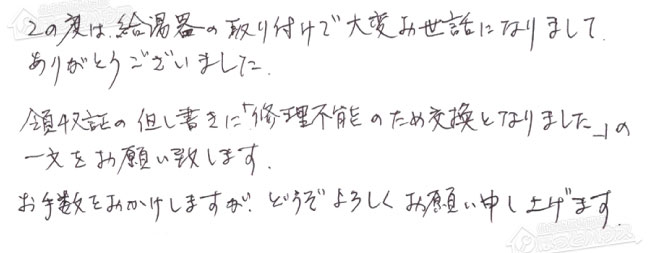 この度は、給湯器の取り付けで大変お世話になりまして、
ありがとうございました。
領収証の但し書きに「修理不能のため交換となりました」の
一文をお願い致します。
お手数をおかけしますが、どうぞよろしくお願い申し上げます。